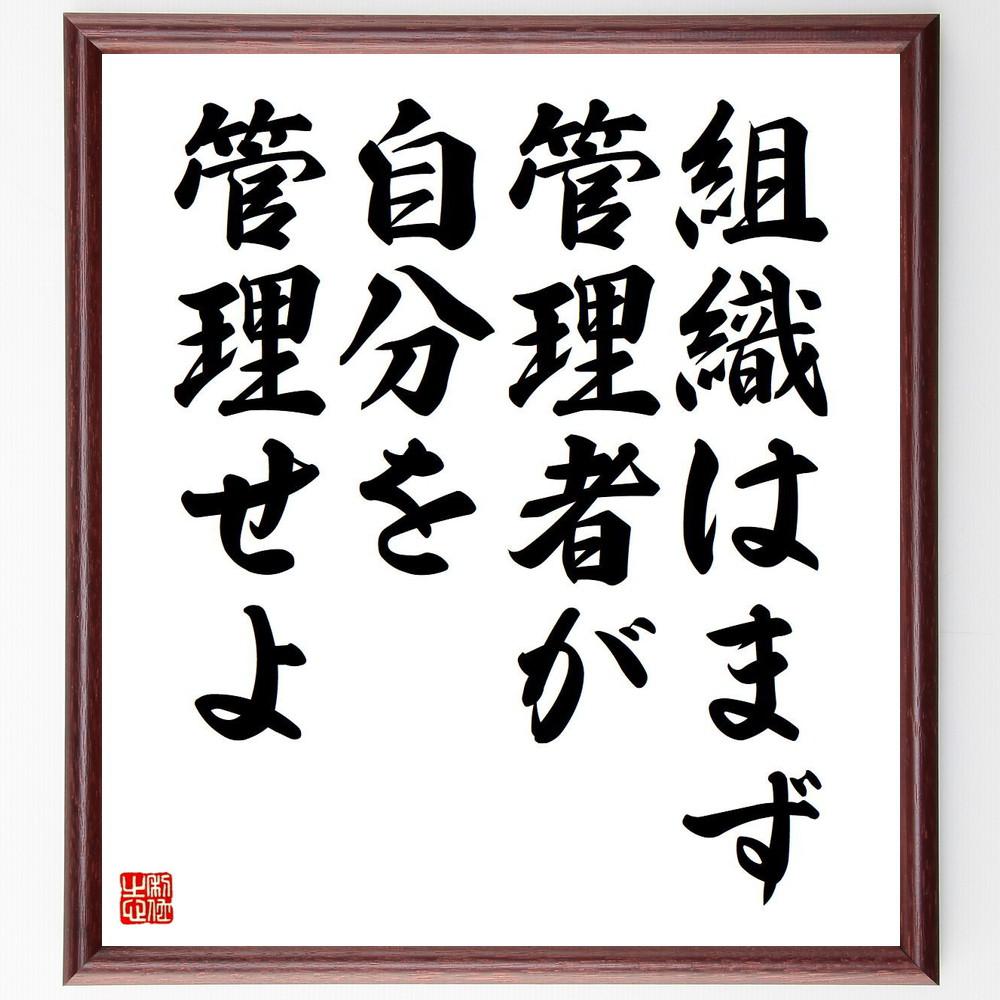 組織はまず
管理者が
自分を
管理せよ